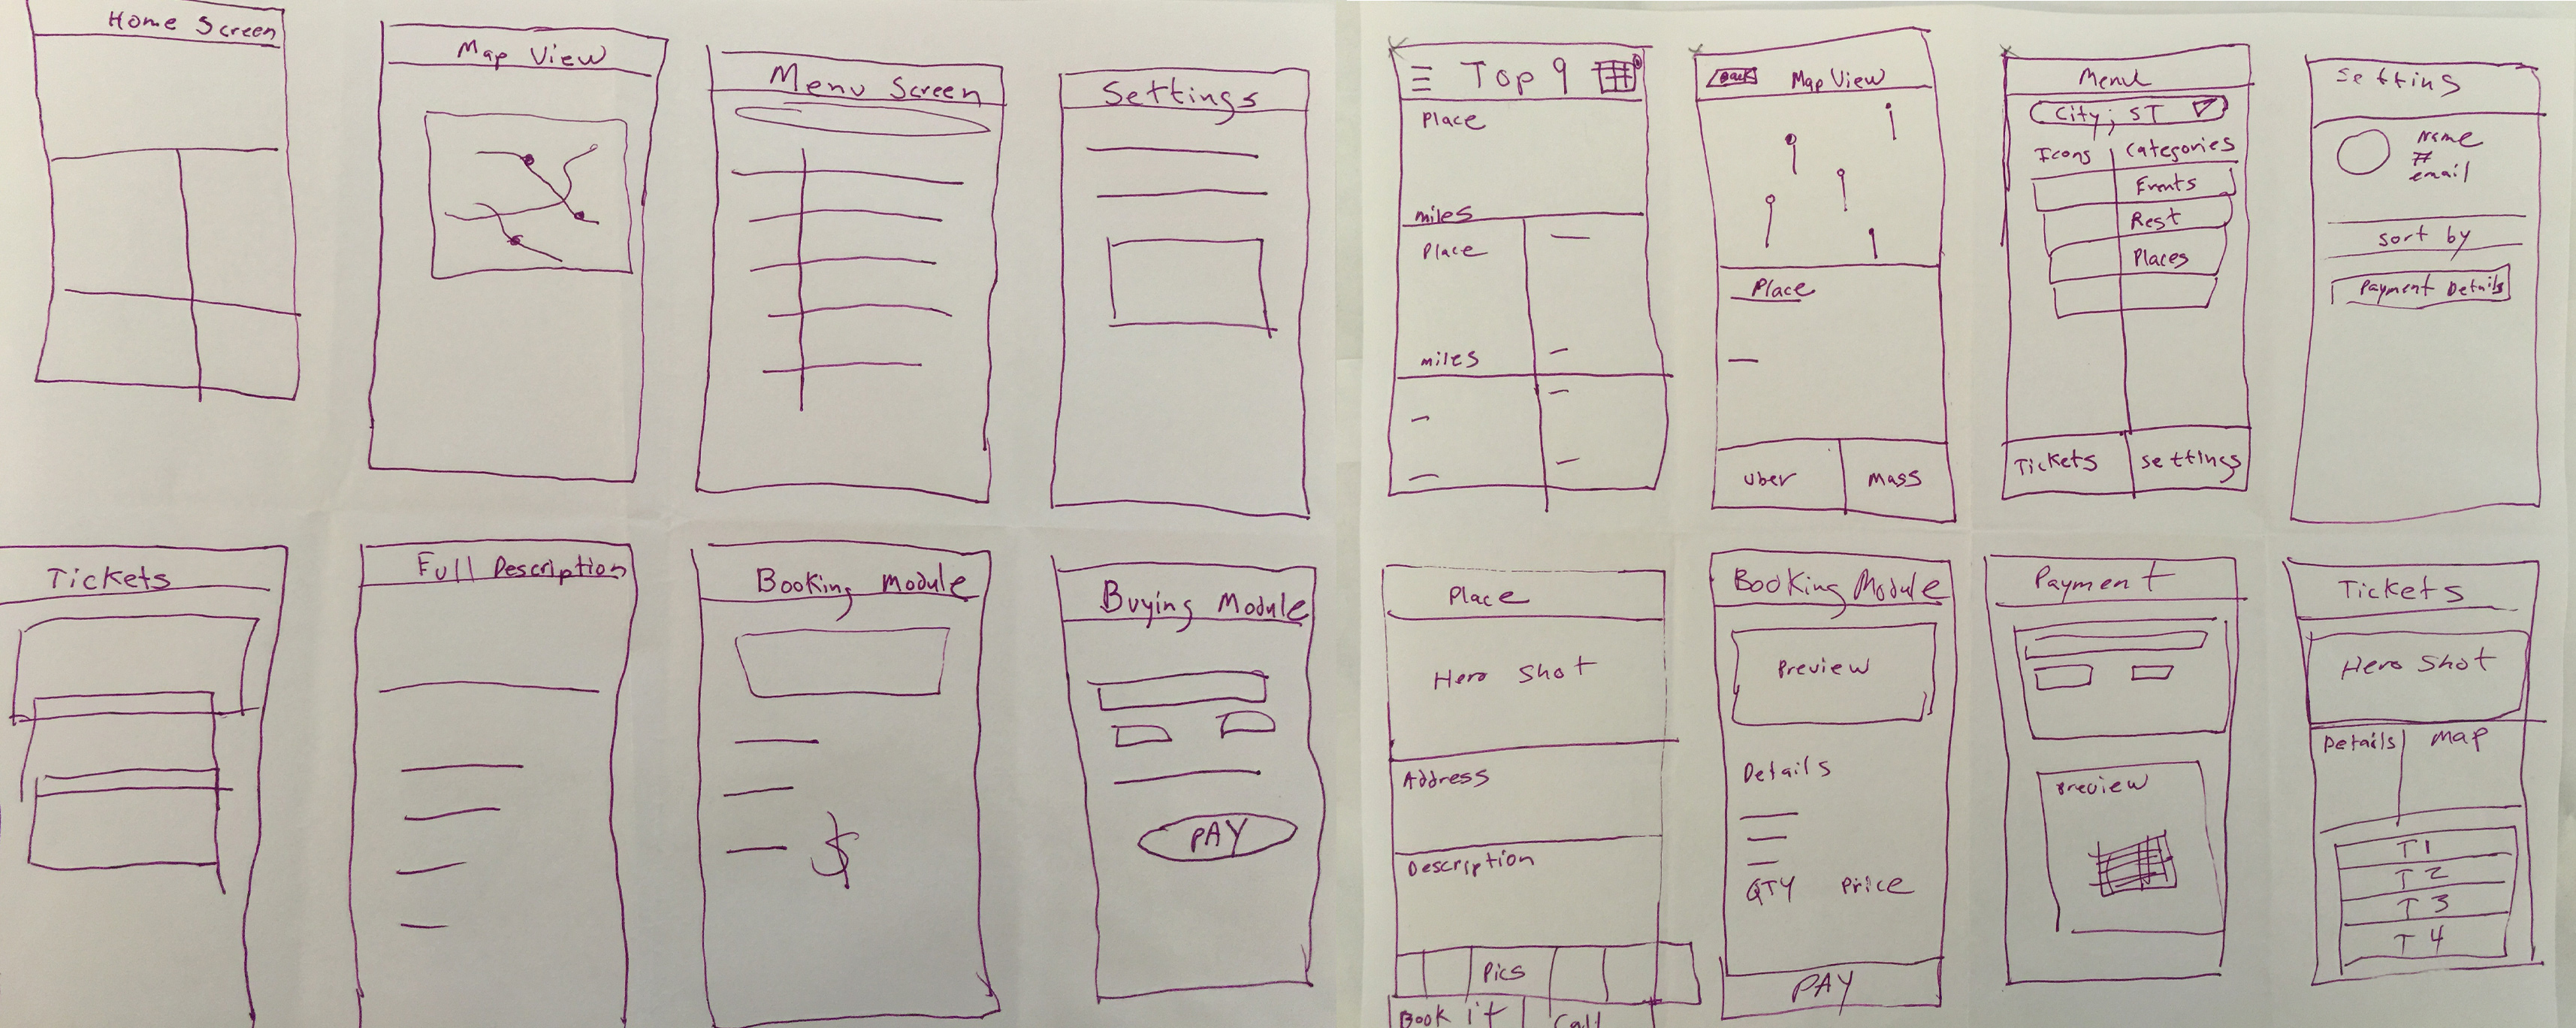 Home Screen
Map View
Menu Screen
Settings
Tickets
Full Description
Booking Module
$
Buying Module
PAY
Top 9
Place
miles
Place
miles
Back
Map View
Place
Uber
Mass
Menu
City, ST
Icons
Categories
Events
Rest
Places
Tickets
Settings
Setting
Name
#
email
Sort by
Payment Details
Place
Hero Shot
Address
Description
Pics
Book it
Call
Booking Module
Preview
Details
QTY Price
PAY
Payment
Preview
Tickets
Hero Shot
Details
Map
T1
T2
T3
T4